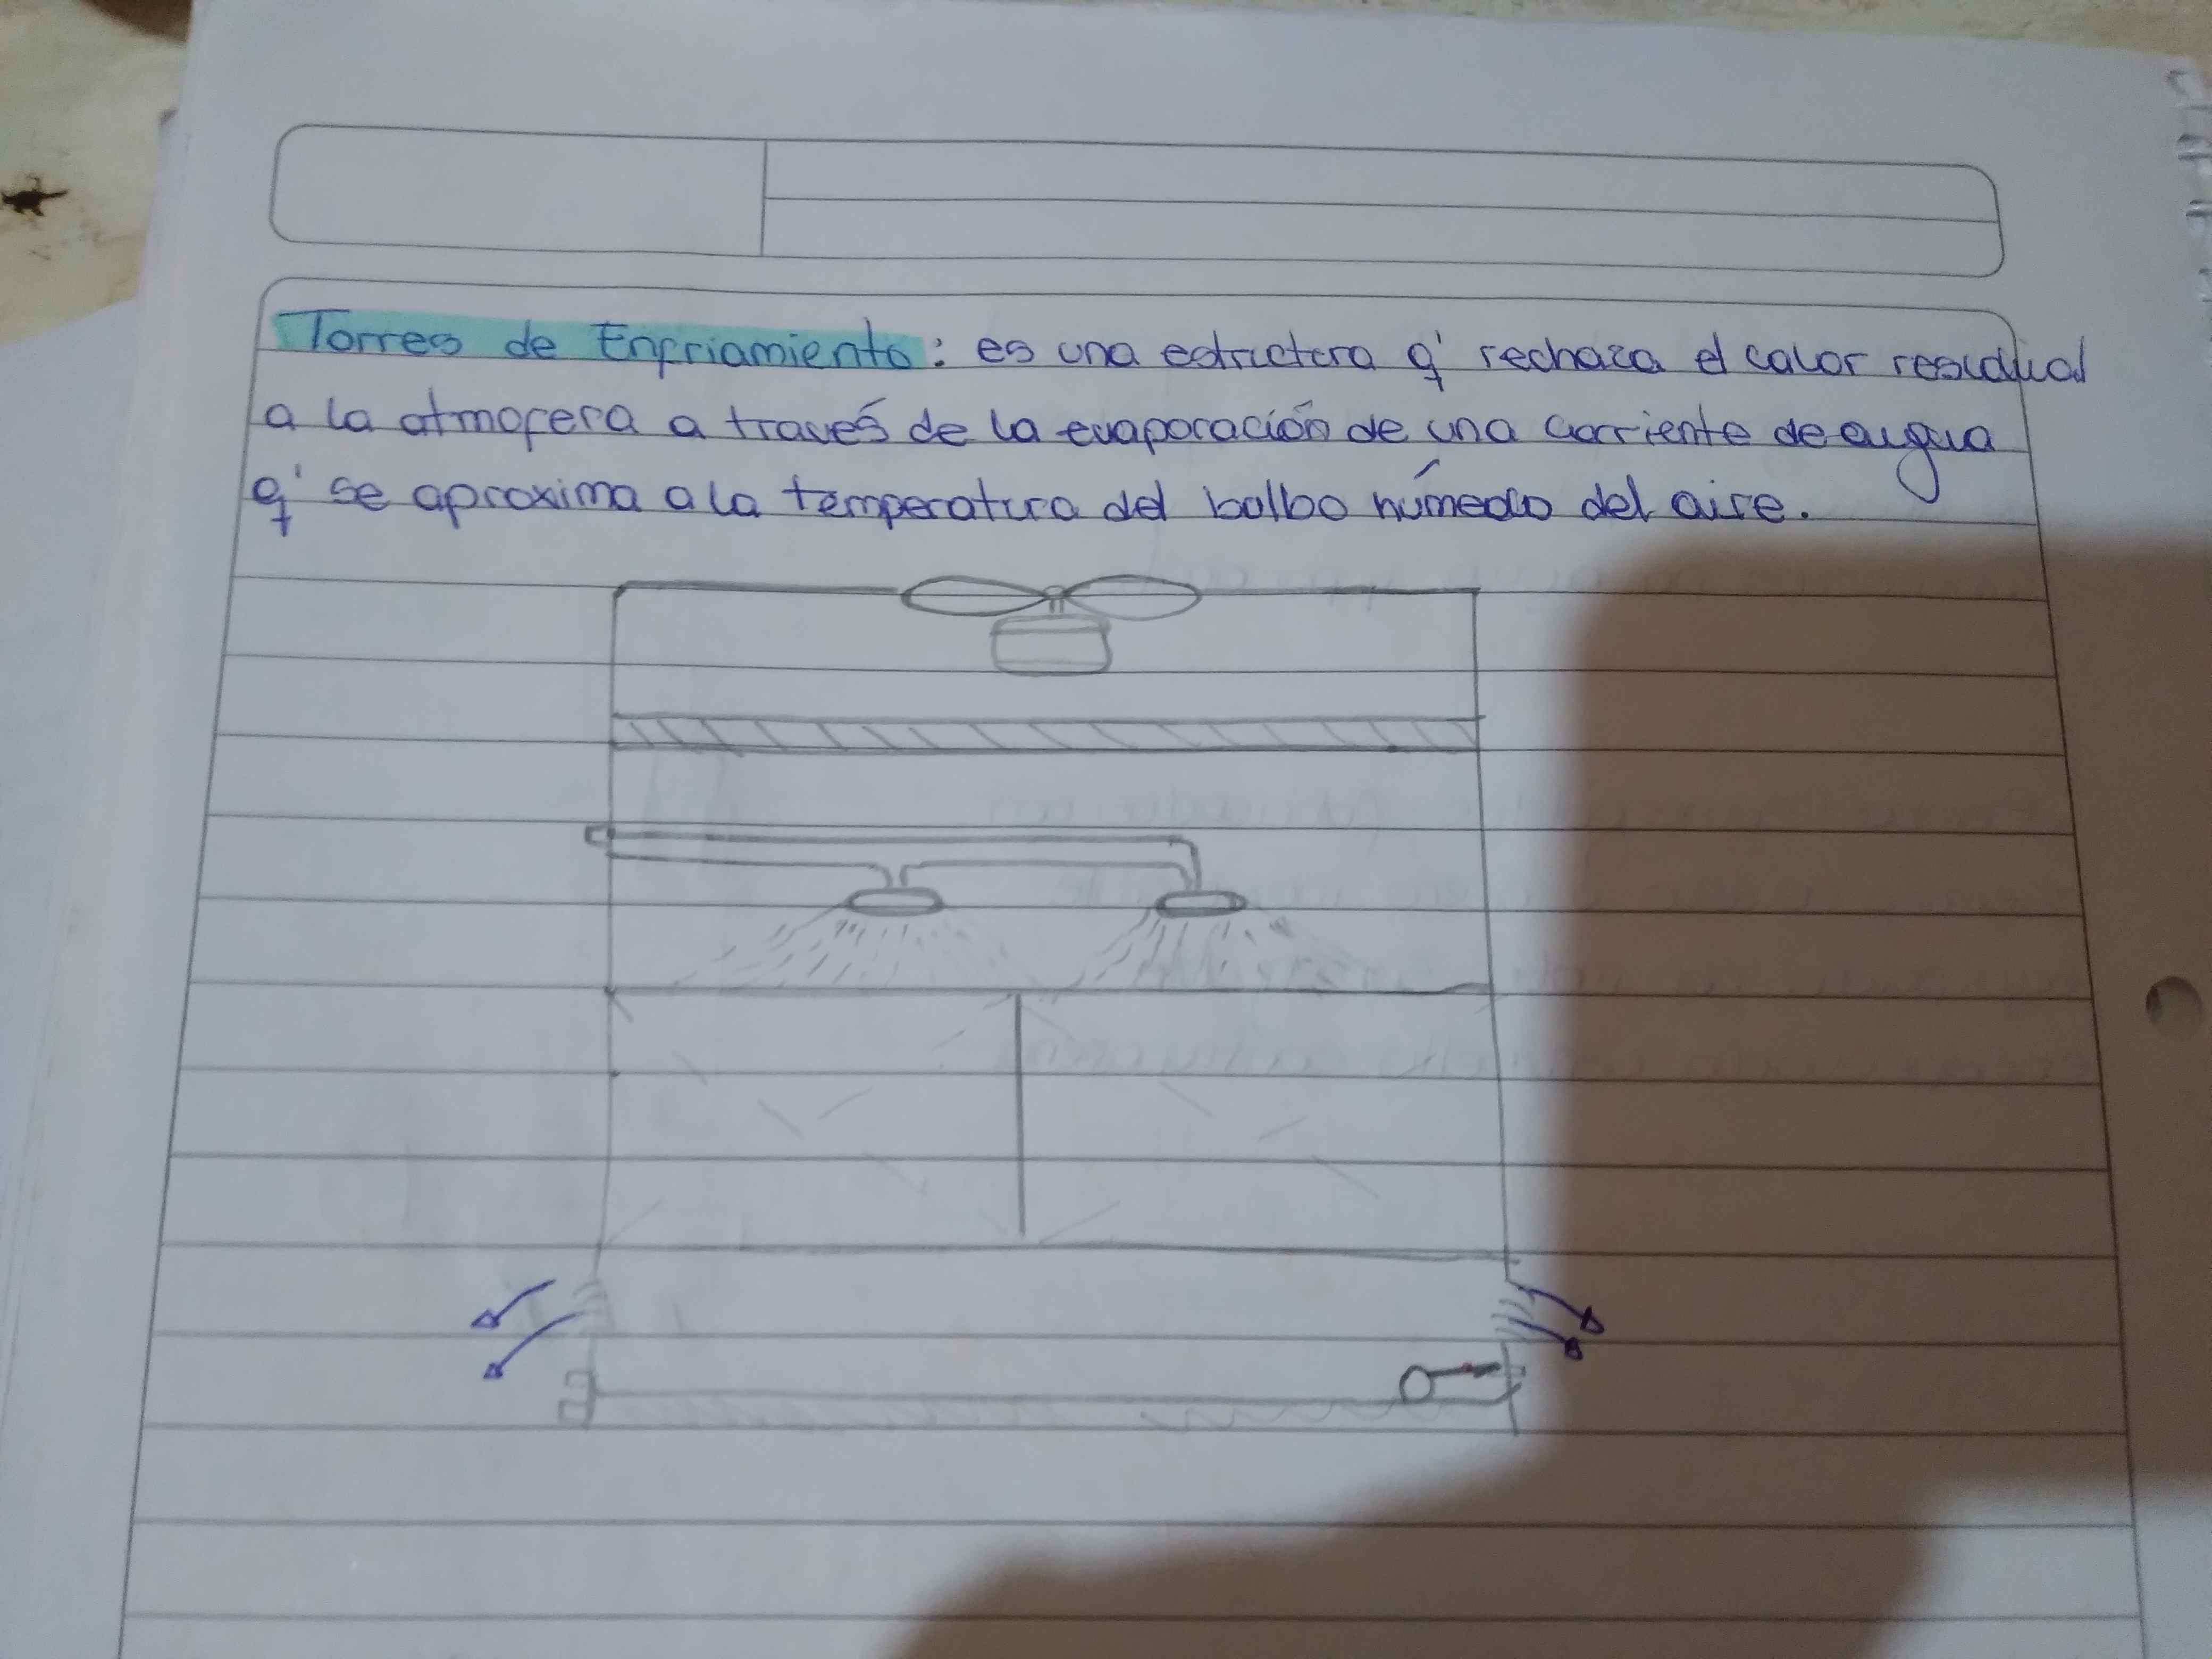 Torres de Enfriamiento: es una estructura q' rechaza el calor residual
a la atmofera a través de la evaporación de una corriente de augua
q' se aproxima a la temperatura del bulbo húmedo del aire.